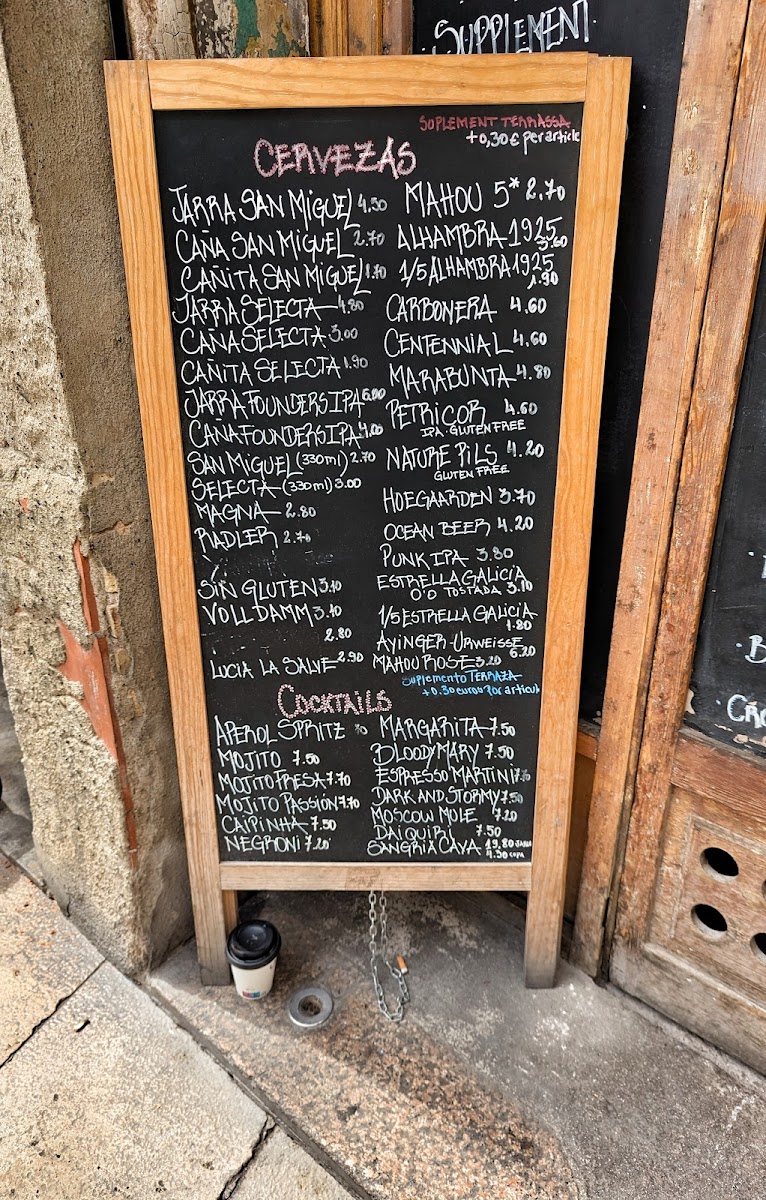 SUPPLEMENT
SUPLEMENT TERRASSA
+0,30€ per article
CERVEZAS
JARRA SAN MIGUEL 4.50
CAÑA SAN MIGUEL 2.70
CAÑITA SAN MIGUEL 1.70
JARRA SELECTA 4.80
CAÑA SELECTA 3.00
CAÑITA SELECTA 1.90
JARRA FOUNDERS IPA 6.00
CAÑA FOUNDERS IPA 4.00
SAN MIGUEL (330ml) 2.70
SELECTA (330ml) 3.00
MAGNA 2.80
RADLER 2.70
SIN GLUTEN 3.10
VOLL DAMM 3.40
2.80
LUCIA LA SALVE 2.90
MAHOU 5* 2.70
ALHAMBRA 1925
3.60
1/5 ALHAMBRA 1925
1.90
CARBONERA 4.60
CENTENNIAL 4.60
MARABUNTA 4.80
PETRICOR 4.60
IPA·GLUTEN FREE
NATURE PILS 4.20
GLUTEN FREE
HOEGAARDEN 3.70
OCEAN BEER 4.20
PUNK IPA 3.80
ESTRELLA GALICIA
0'0 TOSTADA 3.10
1/5 ESTRELLA GALICIA
1.80
AYINGER URWEISSE
6.20
MAHOU ROSE 3.20
Suplemento TERRAZA
+0.30 euros por articulo
COCKTAILS
APEROL SPRITZ
MOJITO 7.50
MOJITO FRESA 7.70
MOJITO PASSIÓN 7.70
CAIPINHA 7.50
NEGRONI 7.20
MARGARITA 7.50
BLOODY MARY 7.50
ESPRESSO MARTINI
DARK AND STORMY 7.50
MOSCOW MULE 7.20
DAIQUIRI 7.50
SANGRIA CAVA 19.80 JARRA
4.50 COPA